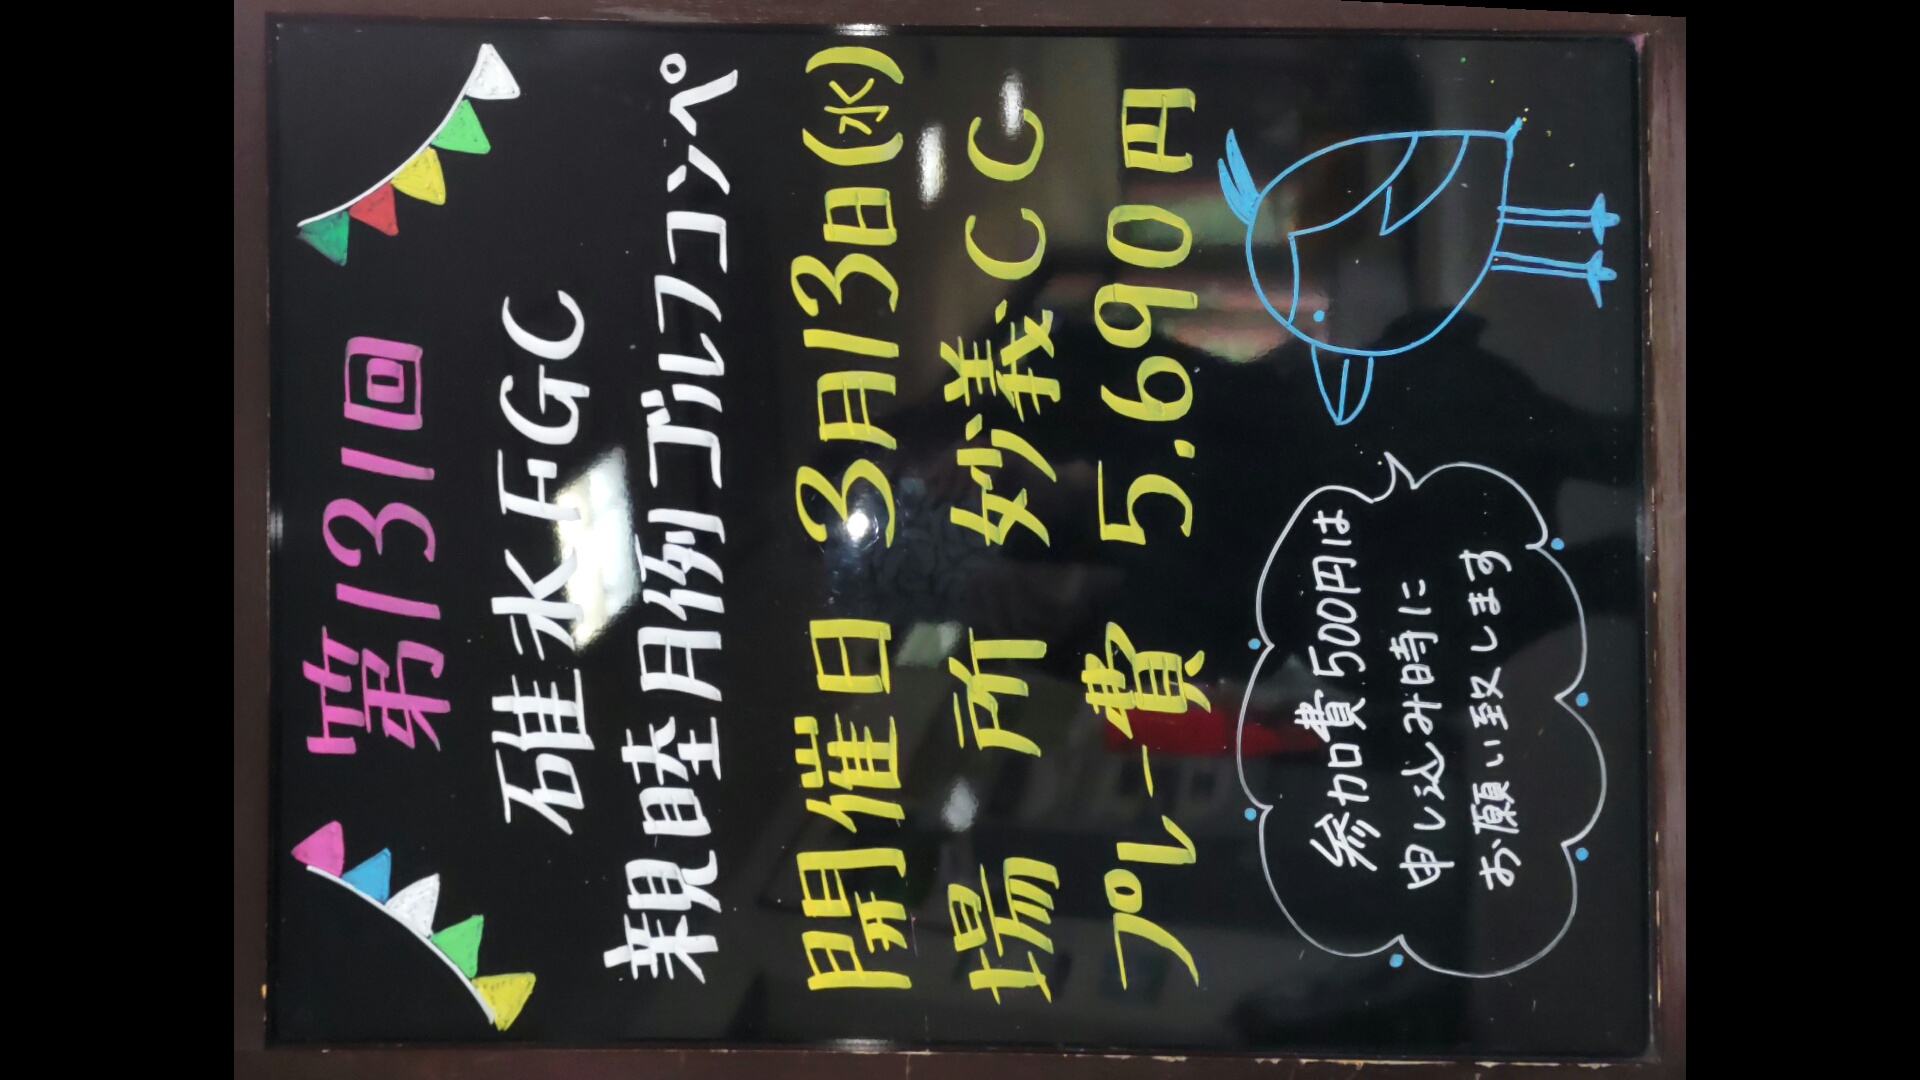 第131回
碓氷FGC
親睦月例ゴルフコンペ
開催日 3月13日(水)
場所 妙義CC
プレー費 5.690円
参加費500円は
申し込み時に
お願い致します